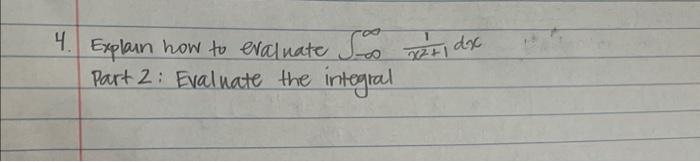 4. Explain how to evaluate ∫_{-∞}^{∞} 1/(x²+1) dx
Part 2: Evaluate the integral